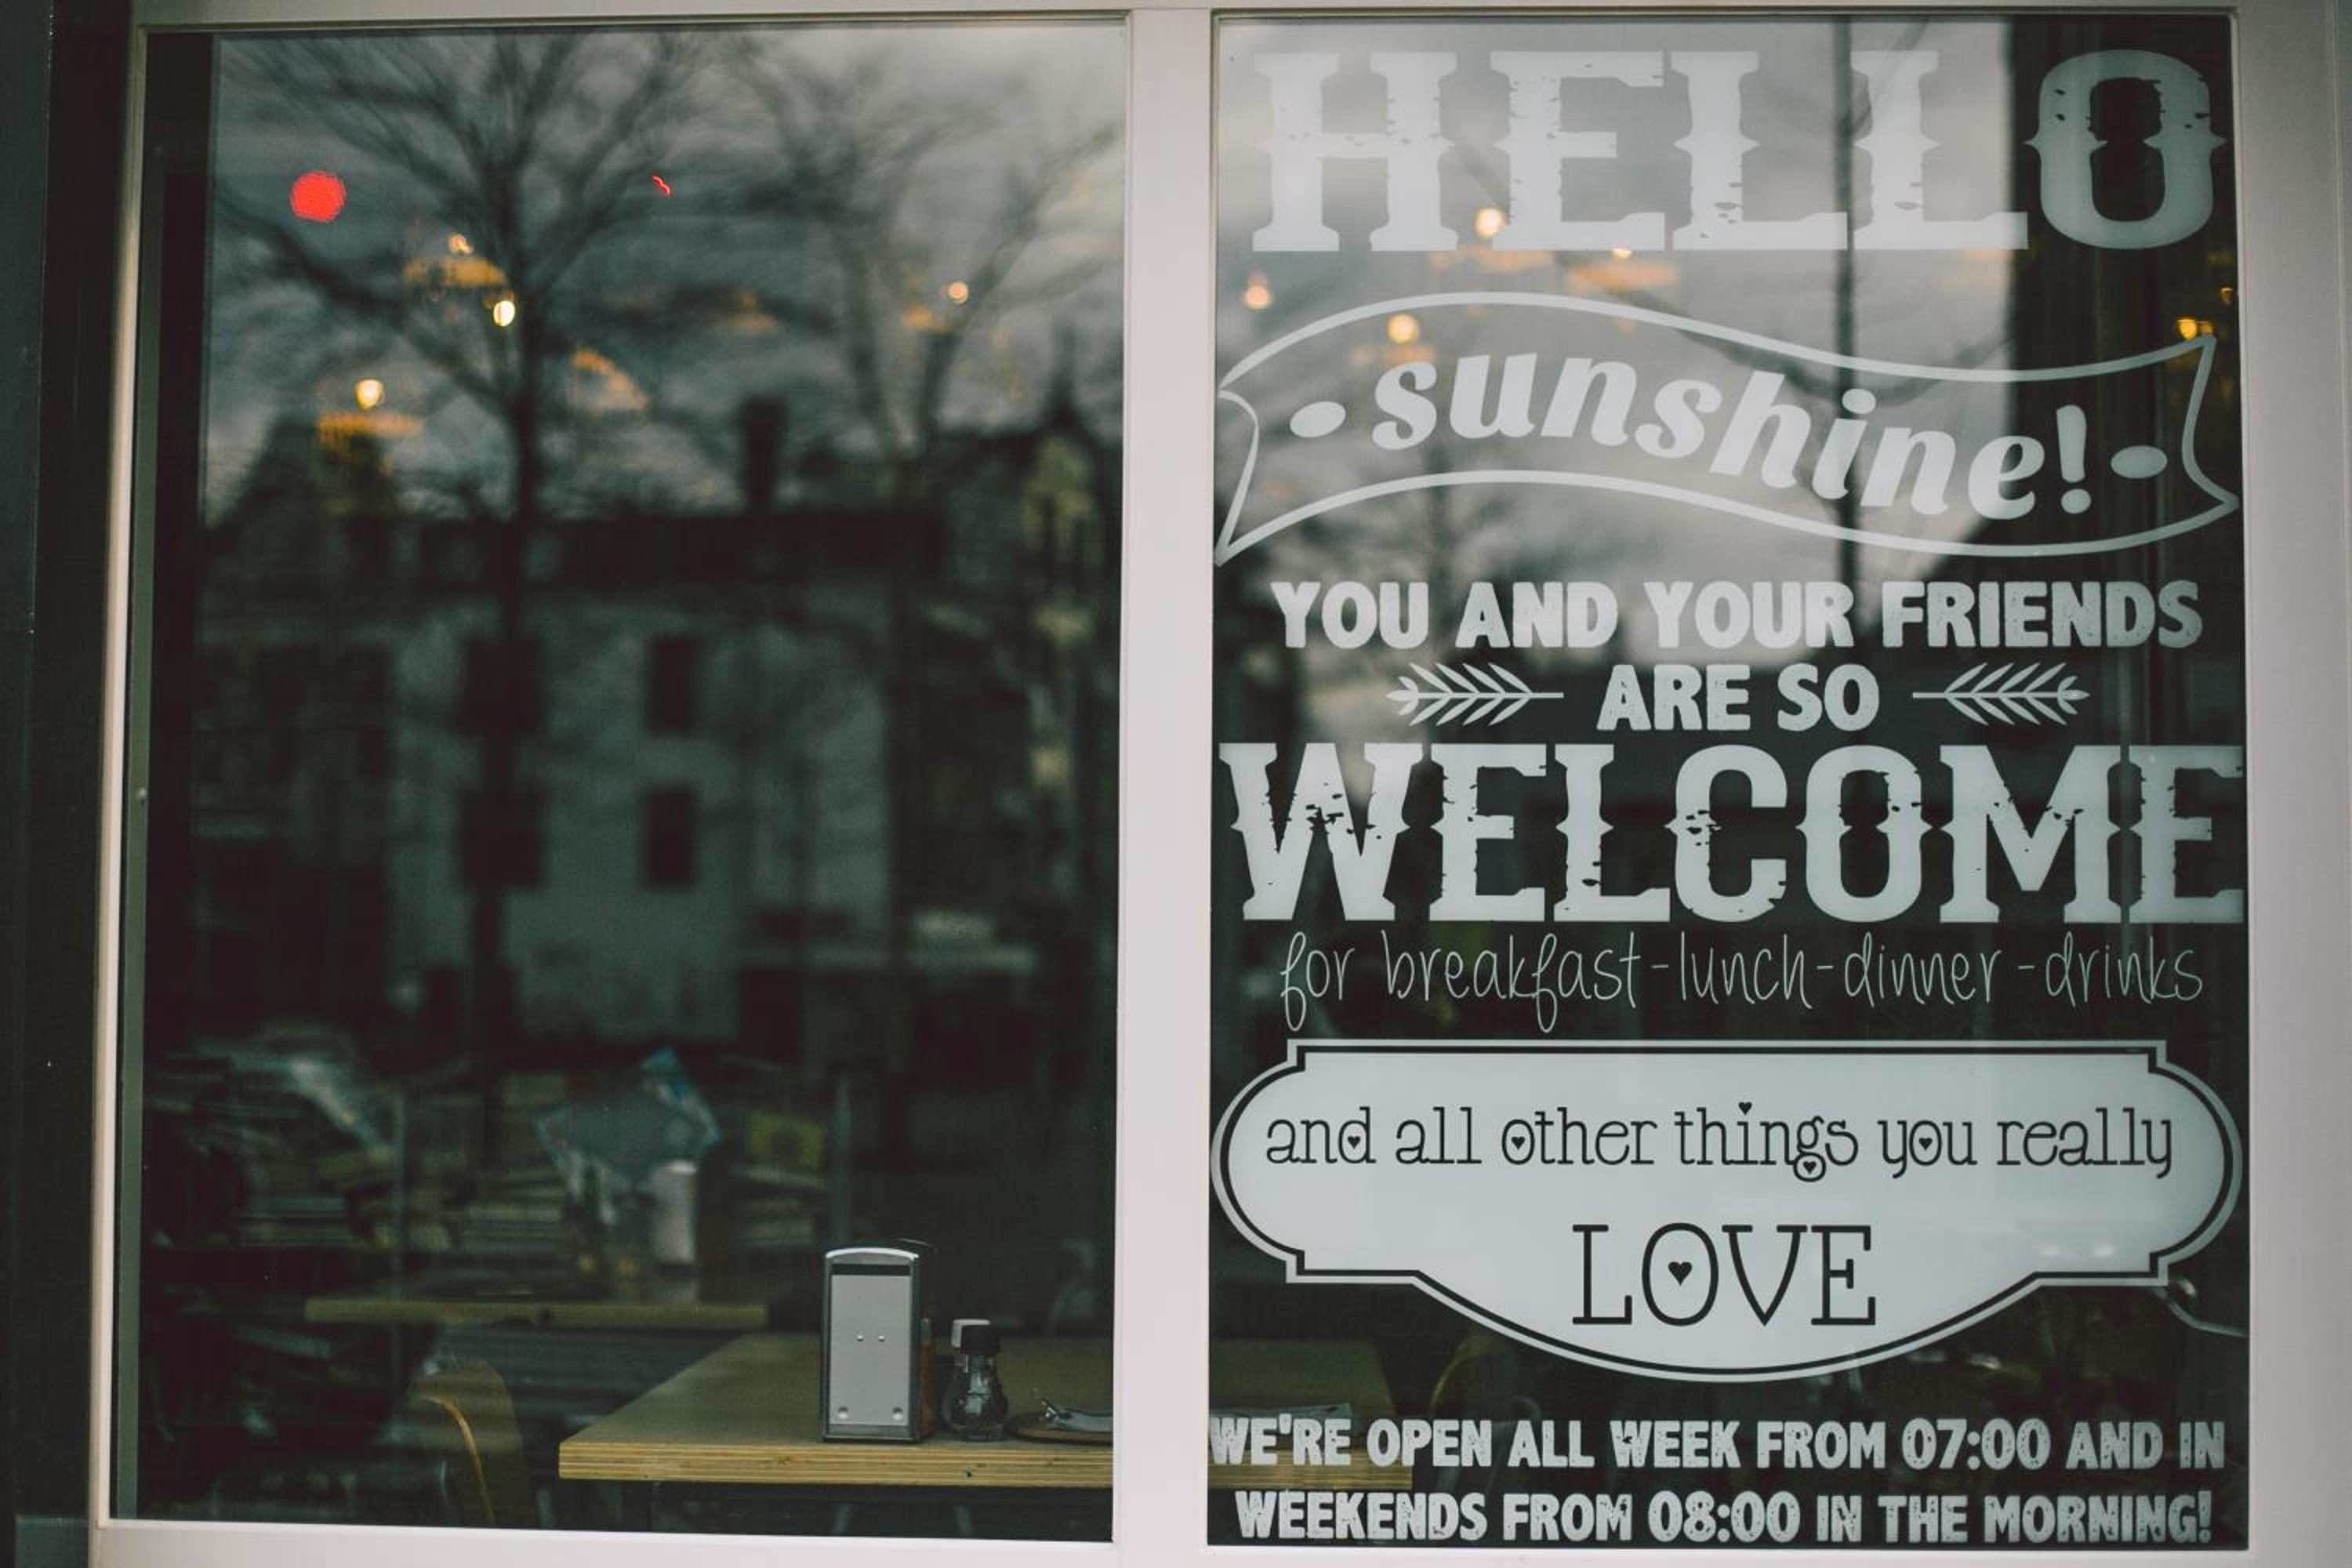 HELLO
sunshine!
YOU AND YOUR FRIENDS
ARE SO
WELCOME
for breakfast-lunch-dinner-drinks
and all other things you really
LOVE
WE'RE OPEN ALL WEEK FROM 07:00 AND IN
WEEKENDS FROM 08:00 IN THE MORNING!